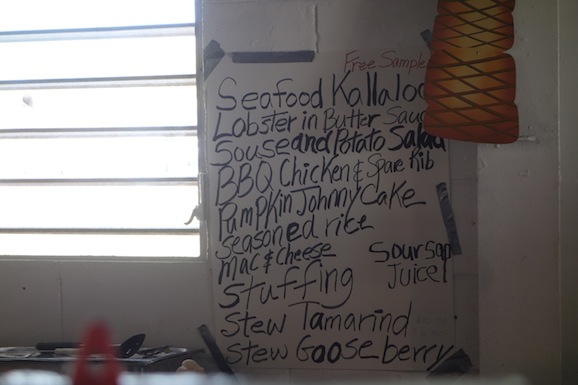 Free Sample
Seafood Kallaloo
Lobster in Butter Sauc
Souse and Potato Salad
BBQ Chicken & Spare Rib
Pumpkin Johnny Cake
Seasoned rice
Mac & Cheese
Stuffing
Soursop
Juice
Stew Tamarind
Stew Gooseberry